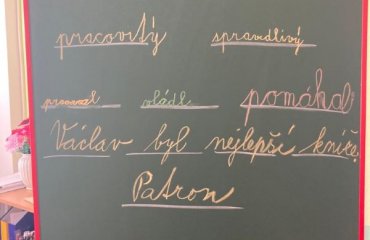 pracovitý spravedlivý
pracoval vládl pomáhal
Václav byl nejlepší kníže.
Patron